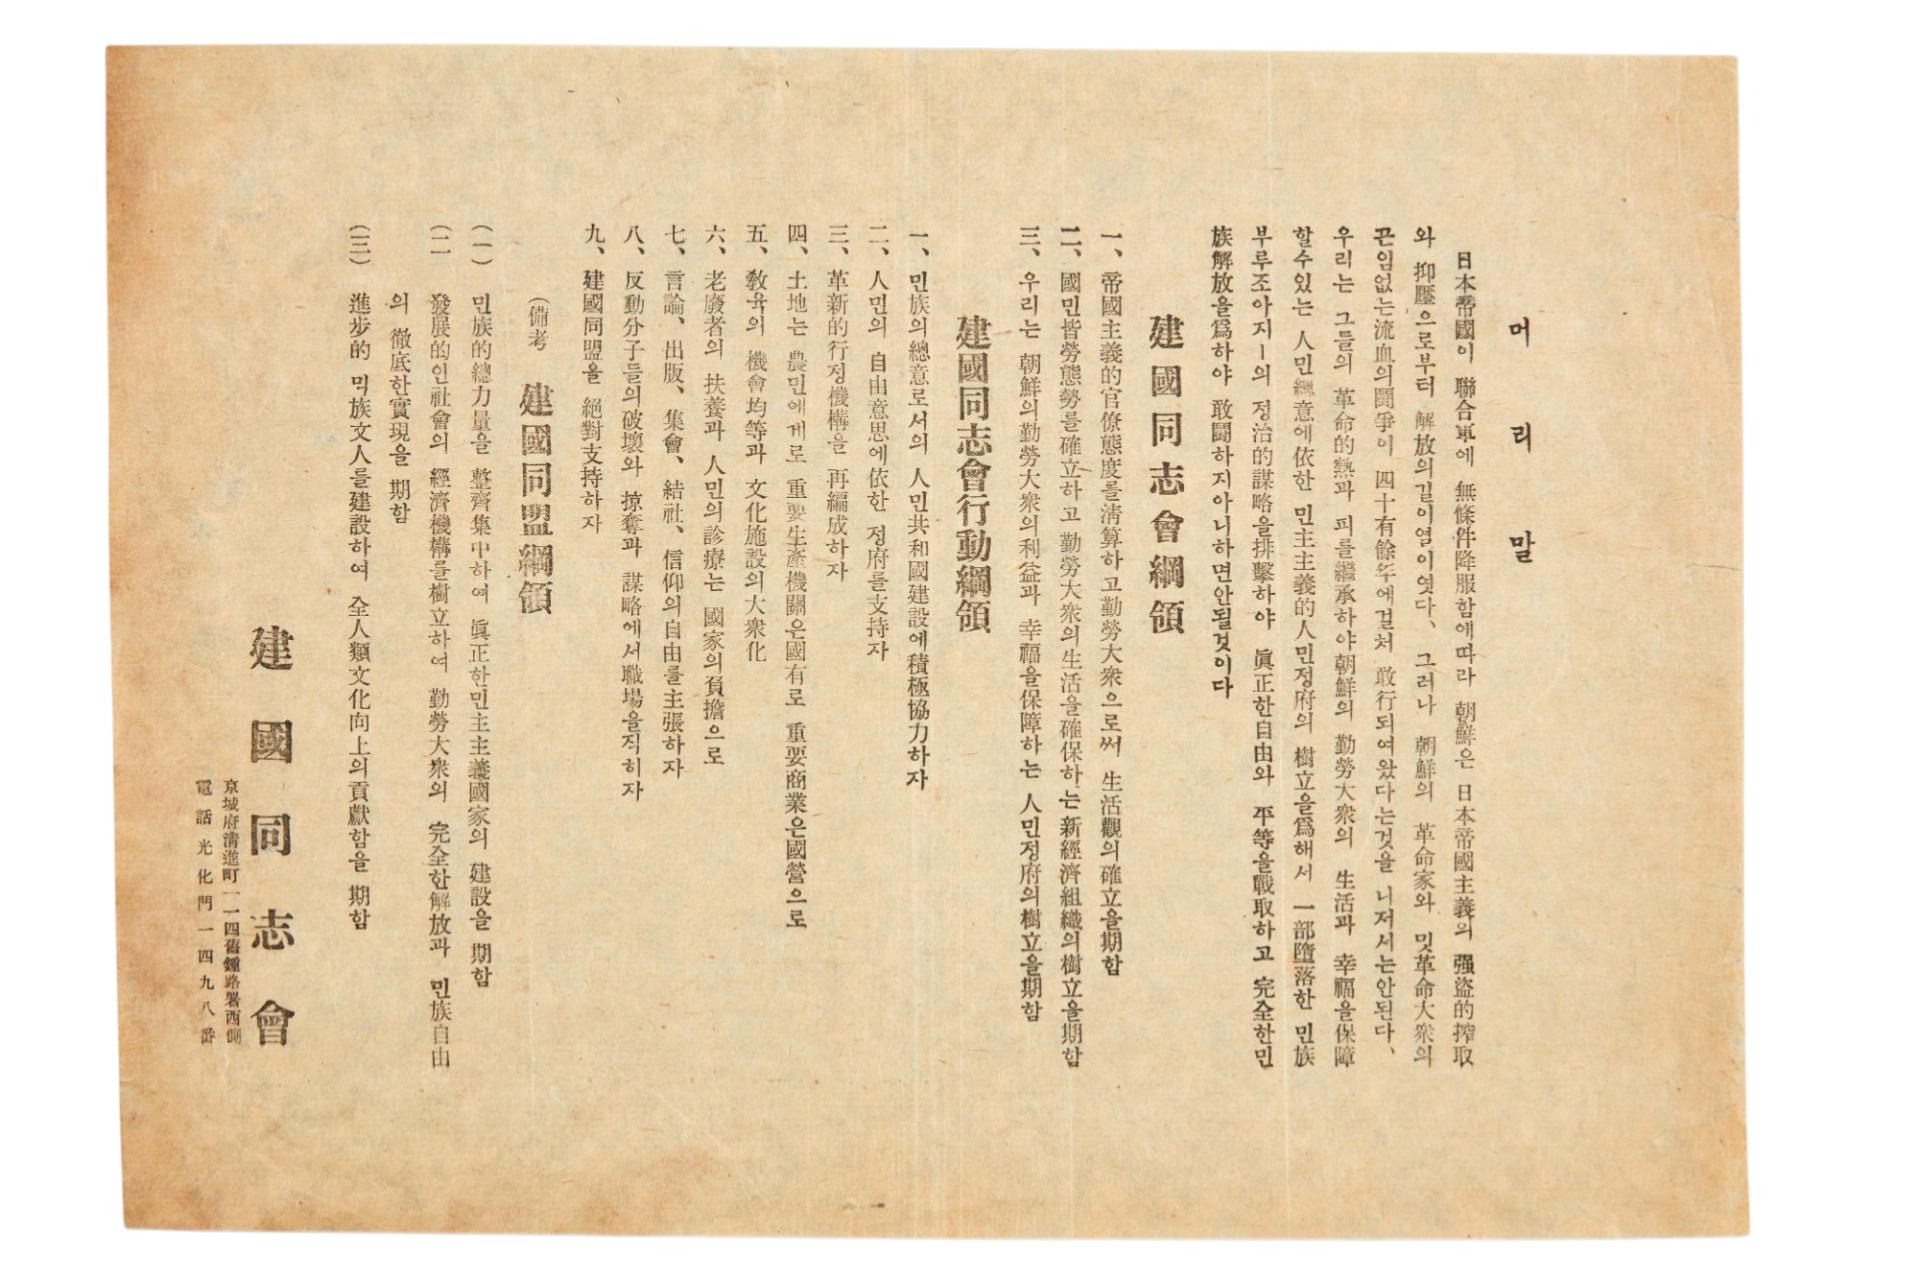 머리말
日本帝國이 聯合軍에 無條件降服함에따라 朝鮮은 日本帝國主義의 强盜的搾取
와 抑壓으로부터 解放의길이열이엿다、그러나 朝鮮의 革命家와 밋革命大衆의
끈임없는流血의鬪爭이 四十有餘年에걸처 敢行되여왔다는것을 니저서는안된다、
우리는 그들의 革命的熱과 피를繼承하야朝鮮의 勤勞大衆의 生活과 幸福을保障
할수있는 人민總意에依한 민主主義的人민정府의 樹立을爲해서 一部墮落한 민族
부루조아지ー의 정治的謀略을排擊하야 眞正한自由와 平等을戰取하고 完全한민
族解放을爲하야 敢鬪하지아니하면안될것이다
建國同志會綱領
一、帝國主義的官僚態度를淸算하고勤勞大衆으로써 生活觀의確立을期함
二、國민皆勞態勢를確立하고 勤勞大衆의生活을確保하는新經濟組織의樹立을期함
三、우리는 朝鮮의勤勞大衆의利益과 幸福을保障하는 人민정府의樹立을期함
建國同志會行動綱領
一、민族의總意로서의 人민共和國建設에積極協力하자
二、人민의 自由意思에依한 정府를支持자
三、革新的行정機構을 再編成하자
四、土地는 農민에게로 重要生產機關은國有로 重要商業은國營으로
五、敎육의 機會均等과 文化施設의大衆化
六、老廢者의 扶養과 人민의診療는 國家의負擔으로
七、言論、出版、集會、結社、信仰의自由를主張하자
八、反動分子들의破壞와 掠奪과 謀略에서職場을직히자
九、建國同盟을 絕對支持하자
(備考 建國同盟綱領
(一) 민族的總力量을 整齊集中하여 眞正한민主主義國家의 建設을 期함
(二 發展的인社會의 經濟機構를樹立하여 勤勞大衆의 完全한解放과 민族自由
의 徹底한實現을 期함
(三) 進步的 믹族文人를建設하여 全人類文化向上의貢獻함을 期함
建國同志會
京城府淸進町一一四舊鍾路署西側
電話光化門一四九八番